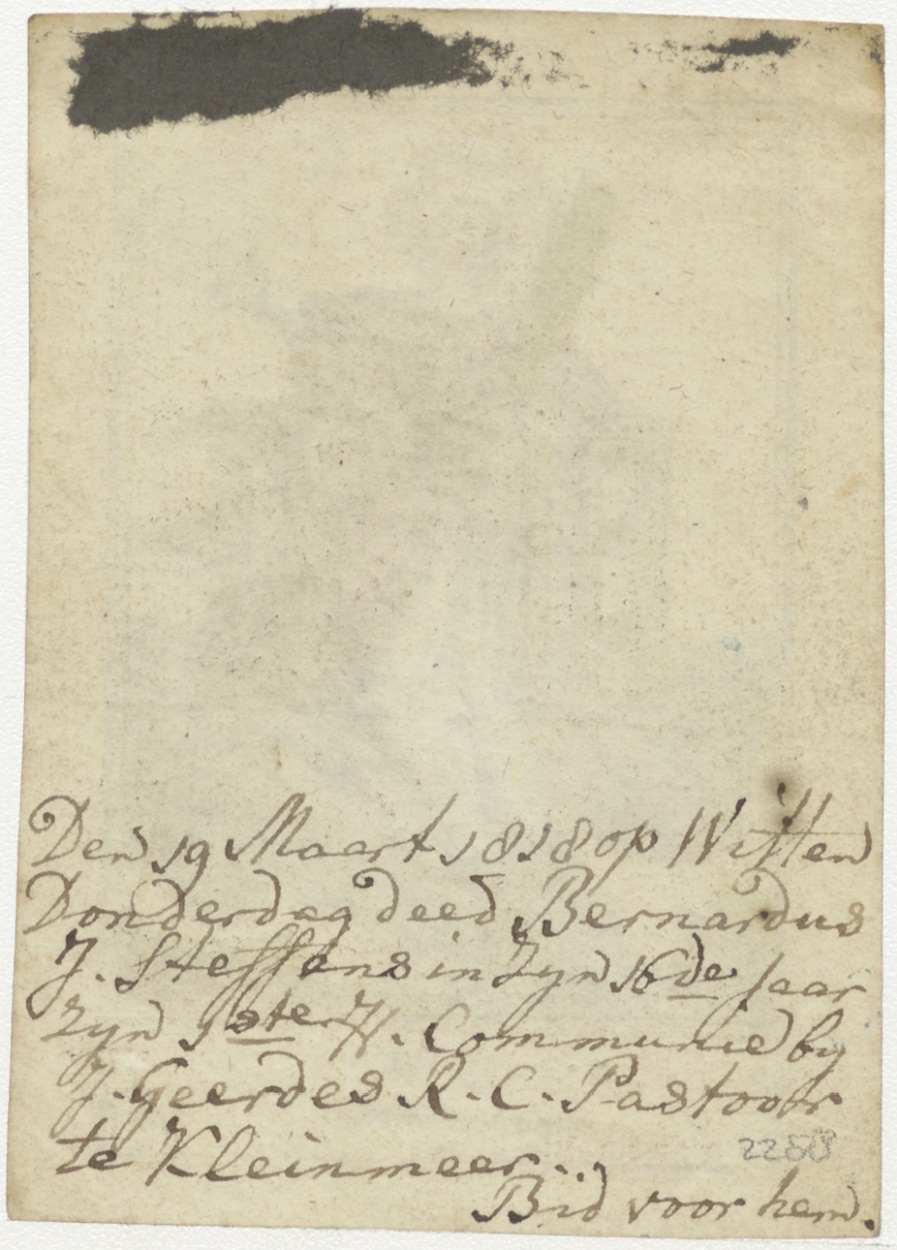 Den 19 Maart 1818 op Witten
Donderdag deed Bernardus
J. Steffens in Zyn 16de Jaar
Zyn 1ste H. Communie by
J. Geerdes R. C. Pastoor
te Kleinmeer...
2288
Bid voor hem.